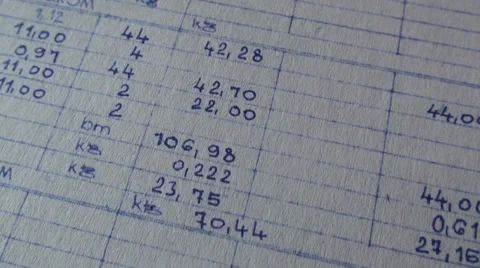 kg
1,12 kg
11,00 44 42,28
0,97 4
11,00 44 42,70 44,00
11,00 2 22,00
2
bm 106,98
kg 0,222 44,00
kg 23,75 0,61
kg 70,44 27,16